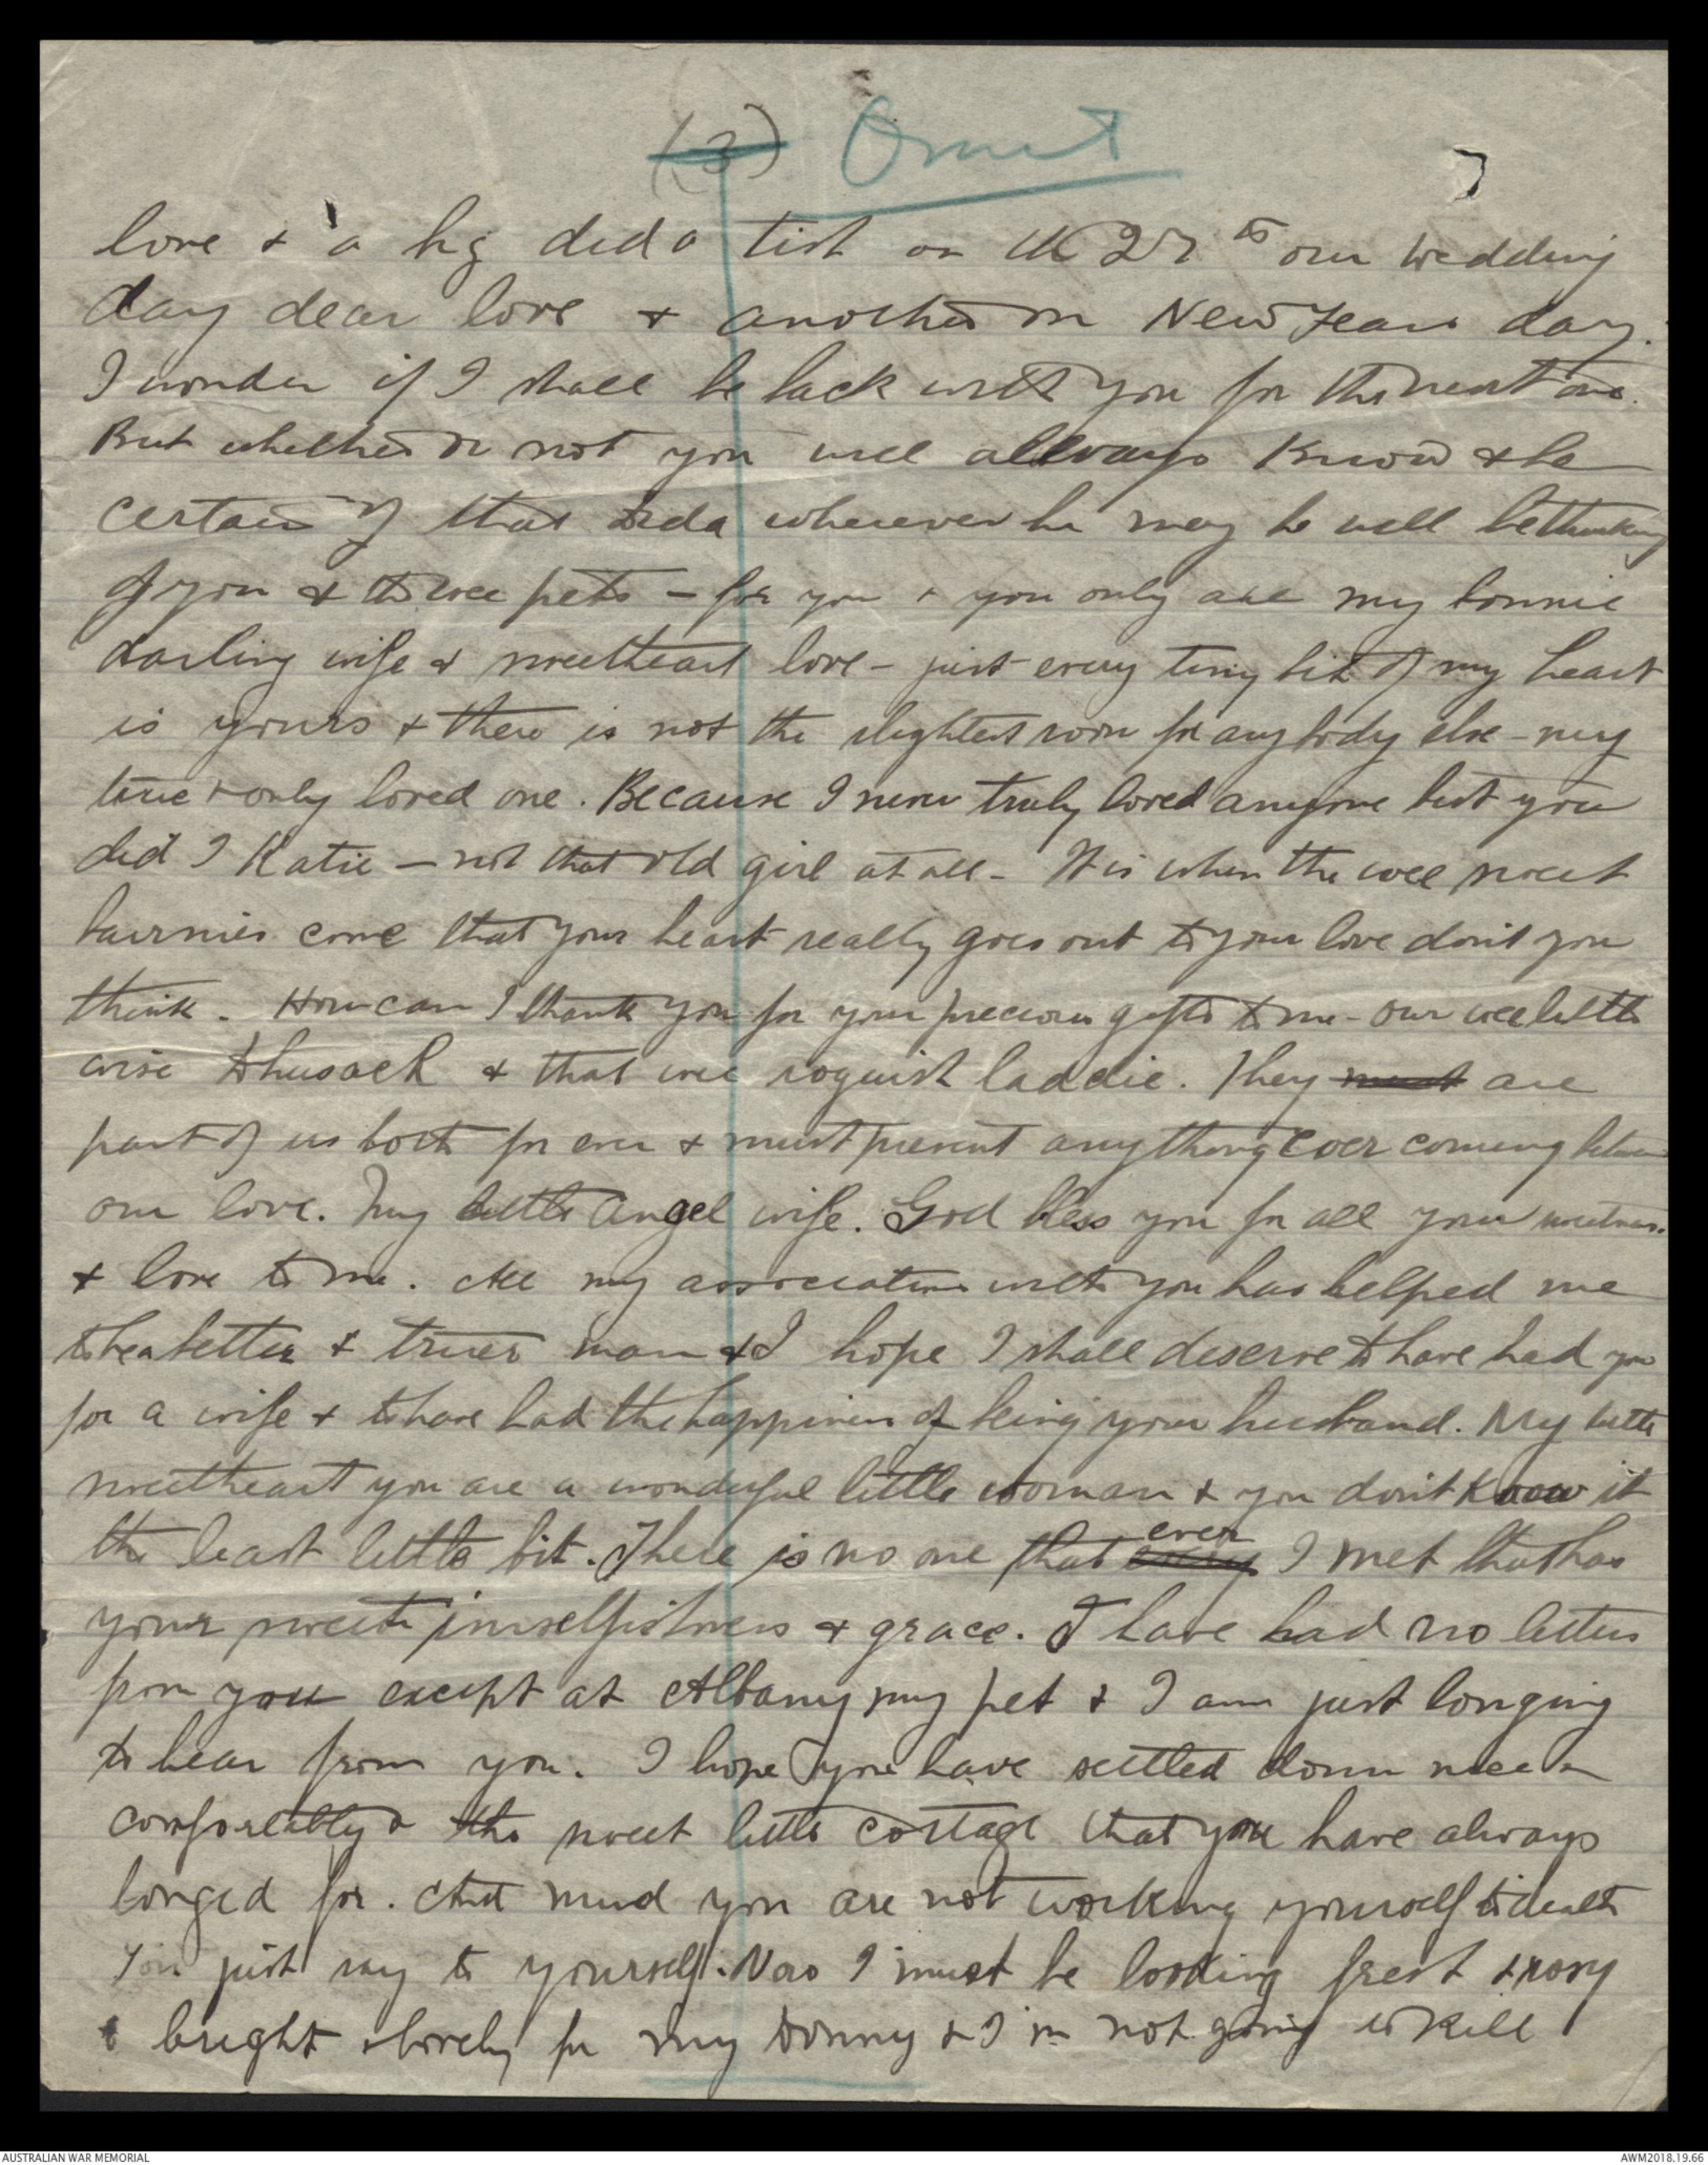 (3) Omit
love & a big dida tist on the 27th our wedding
day dear love & another on New Years day.
I wonder if I shall be back with you for the next one.
But whether or not you will allways know & be
certain of that dida wherever he may be will be thinking
of you & the wee pets - for you & you only are my bonnie
darling wife & sweetheart love - just every tiny bit of my heart
is yours & there is not the slightest room for any body else - my
true & only loved one. Because I never truly loved anyone but you
did I Katie - not that old girl at all - It is when the wee sweet
bairnies come that your heart really goes out to your love don't you
think. How can I thank you for your precious gifts to me - our wee little
wise & that wee roguish laddie. They must are
part of us both for ever & must prevent anything ever coming between
our love. My little angel wife. God bless you for all your sweetness
& love to me. All my association with you has helped me
to be a better & truer man & I hope I shall deserve to have had you
for a wife & to have had the happiness of being your husband. My little
sweetheart you are a wonderful little woman & you don't know it
the least little bit. There is no one that ever I met that has
your sweet unselfishness & grace. I have had no letters
from you except at Albany my pet & I am just longing
to hear from you. I hope you have settled down nice &
comfortably in the sweet little cottage that you have always
longed for. And mind you are not working yourself to death
You just say to yourself. Now I must be looking fresh & rosy
& bright & lovely for my sonny & I'm not going to kill
AUSTRALIAN WAR MEMORIAL
AWM2018.19.66